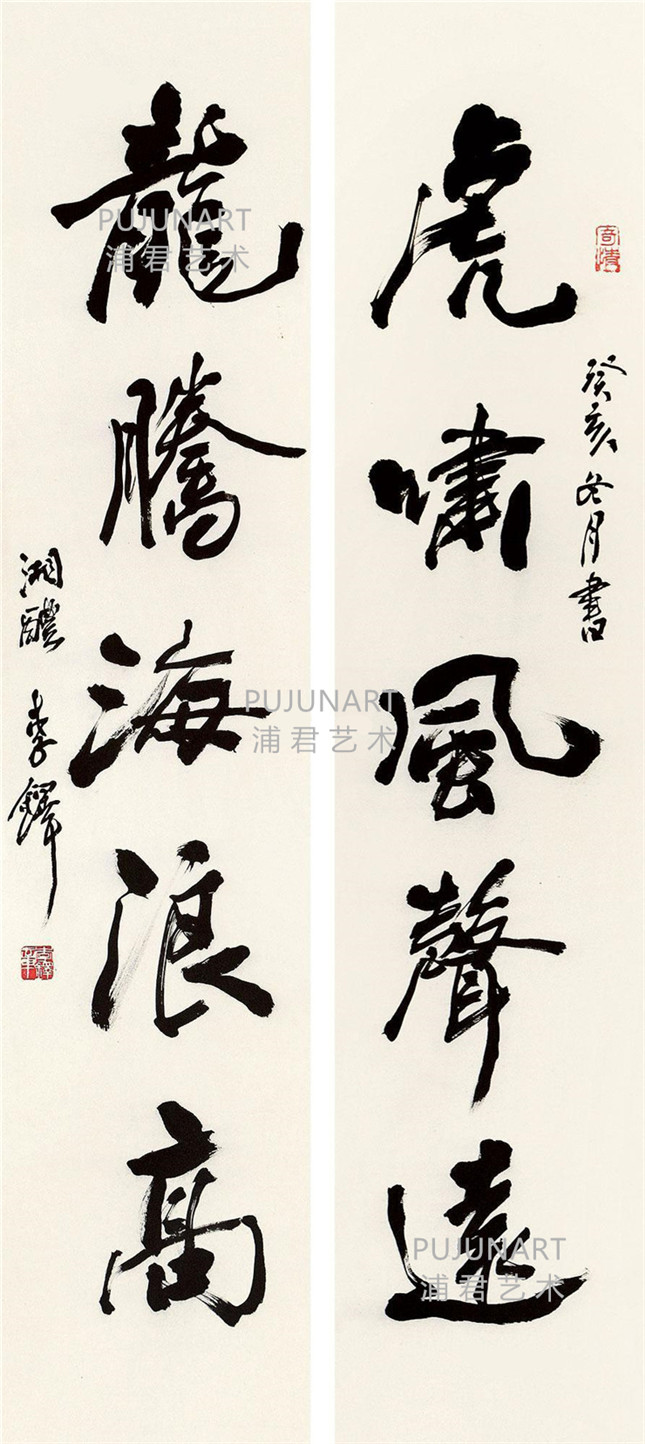 虎嘯風聲遠
癸亥冬月書
龍騰海浪高
湘醴李鐸
PUJUNART
浦君艺术
PUJUNART
浦君艺术
PUJUNART
浦君艺术